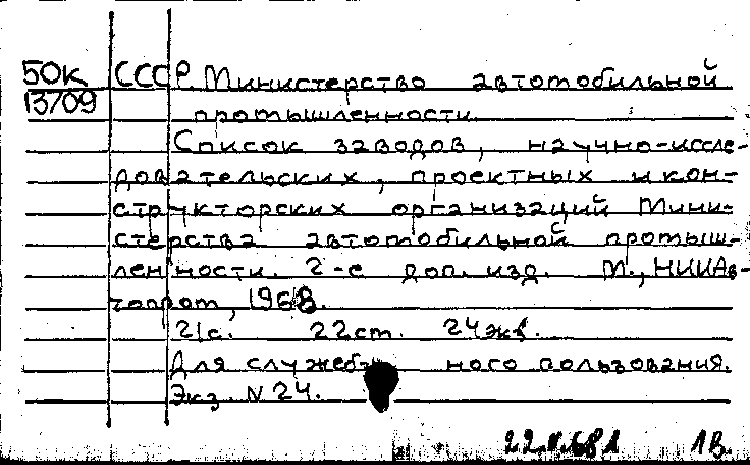 50к СССР. Министерство автомобильной
13709 промышленности.
Список заводов, научно-иссле-
довательских, проектных и кон-
структорских организаций Мини-
стерства автомобильной промыш-
ленности. 2-е доп. изд. М., НИИАв-
топром, 1968.
21с. 22см. 24экз.
Для служебного пользования.
Экз. N 24.
1В.